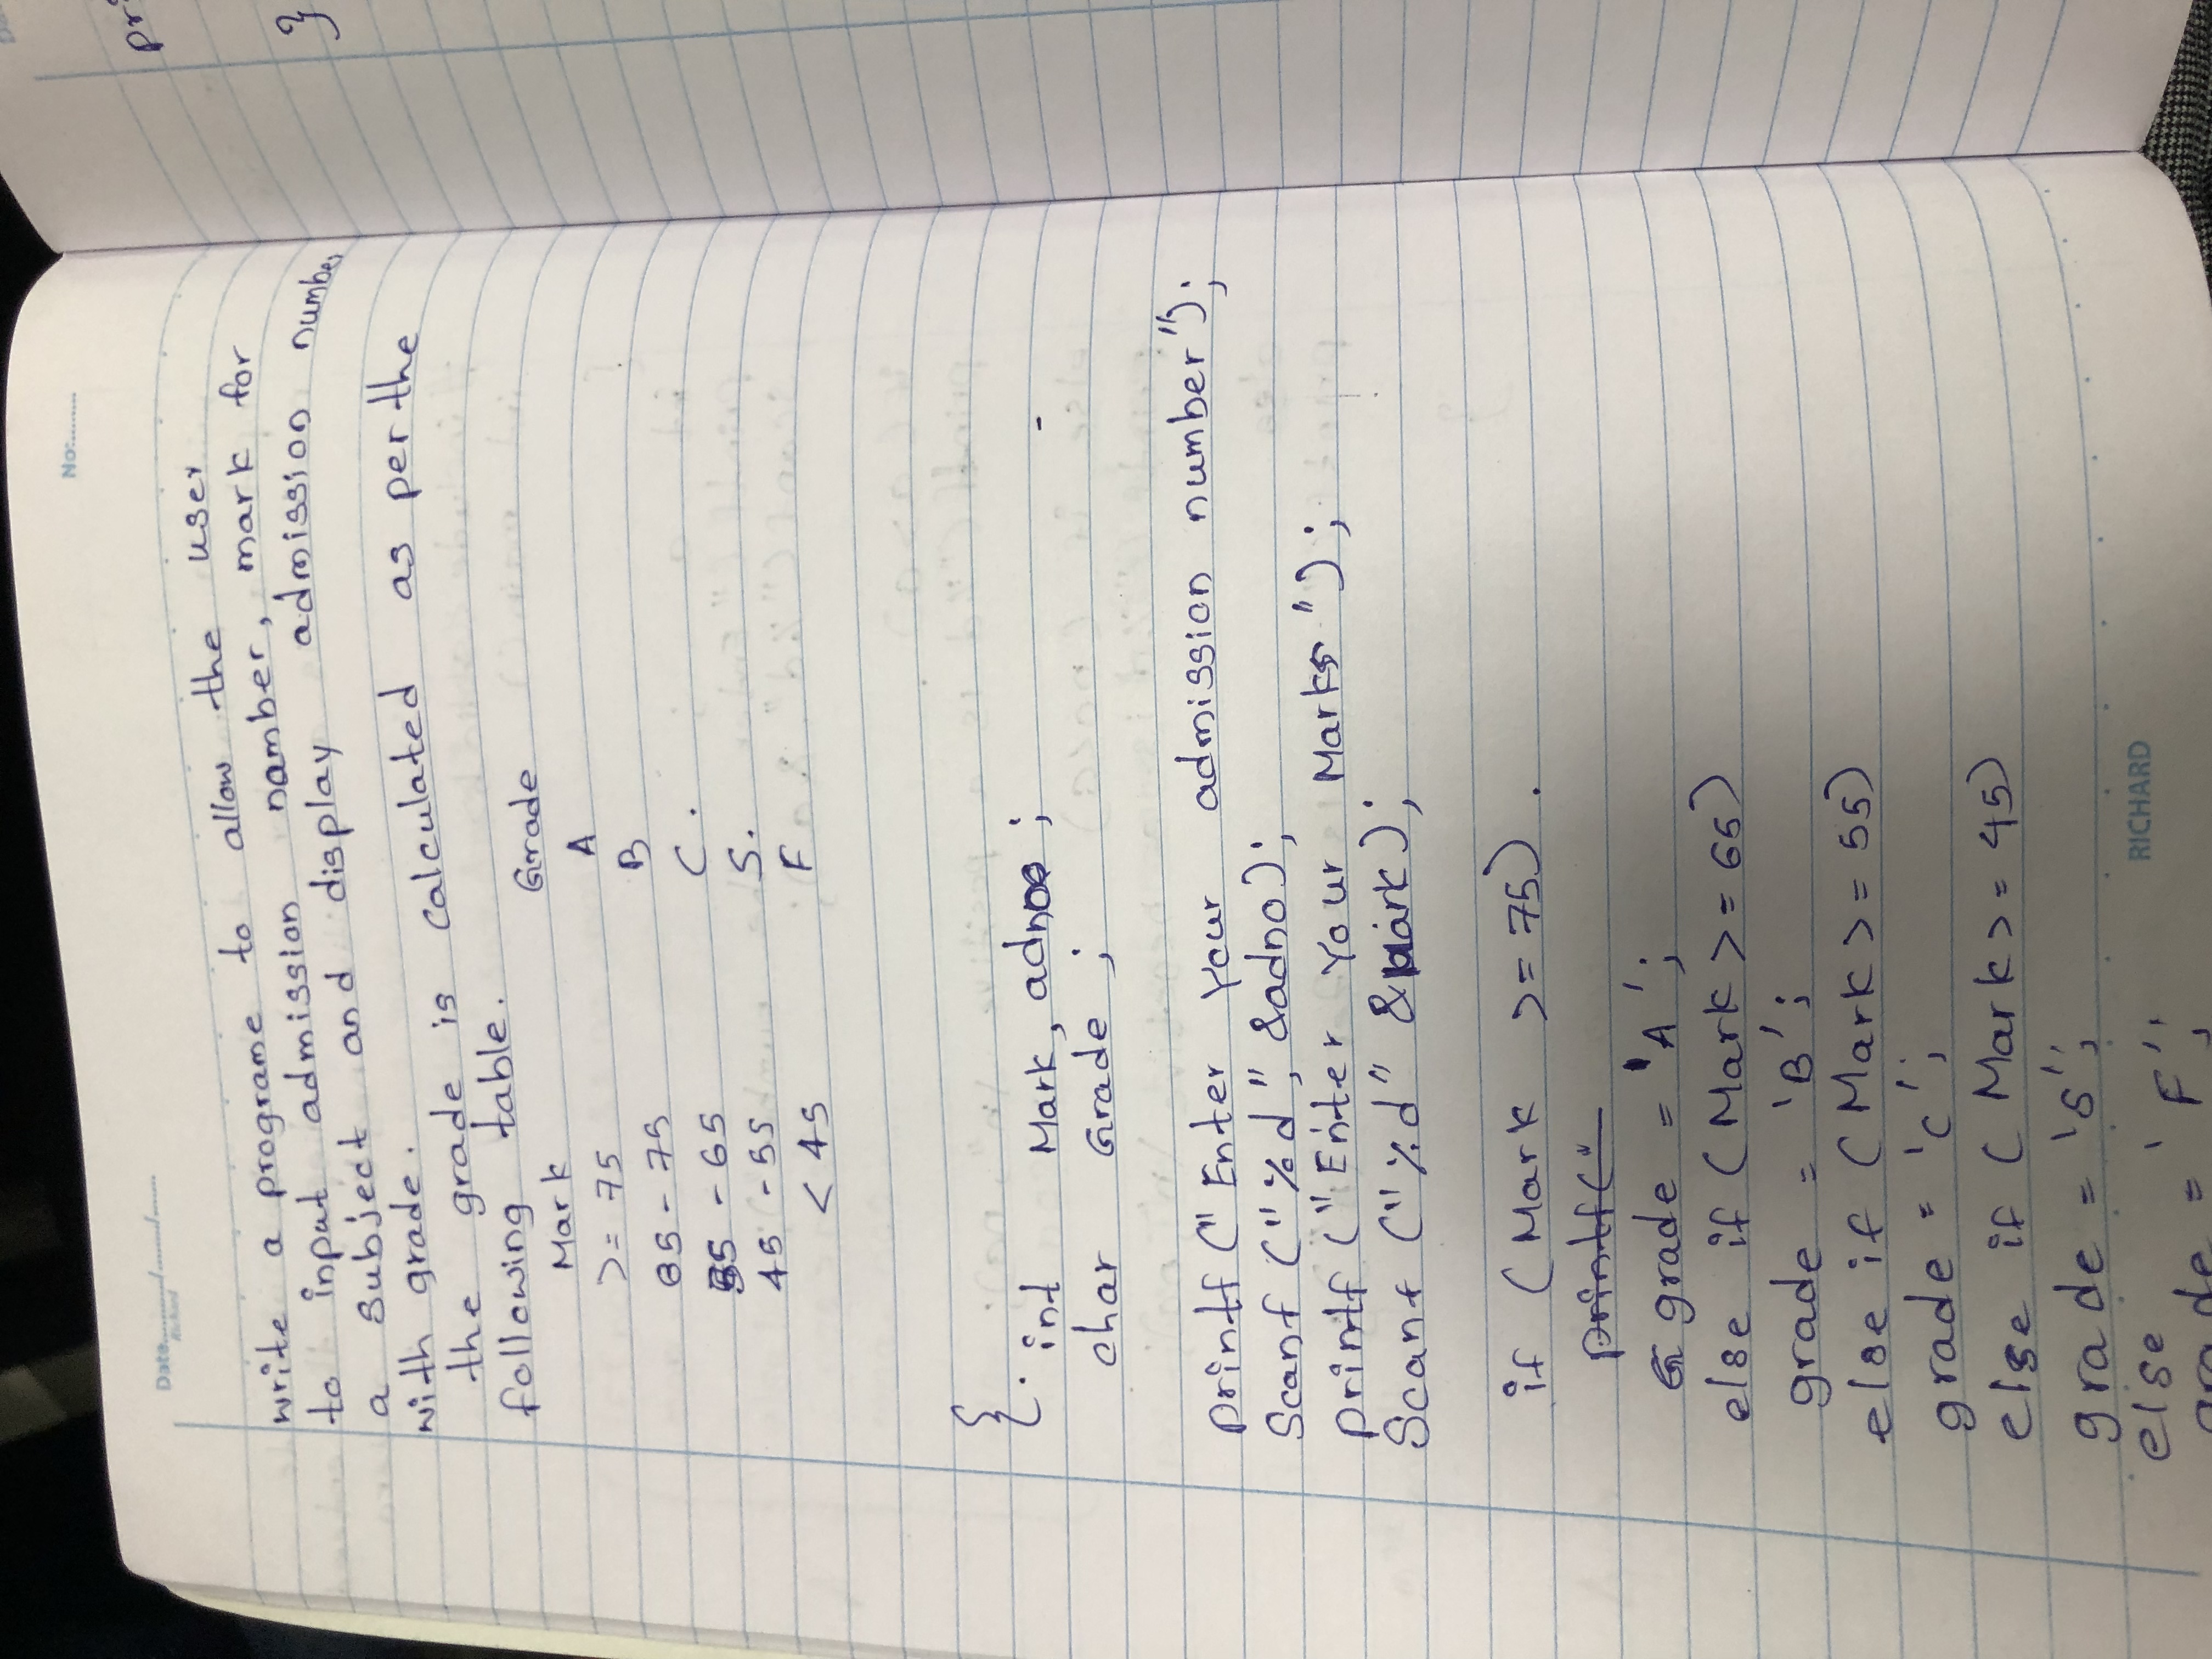 No:.........
Date.........../......../.......
Richard
write a programe to allow the user
to input admission namber, mark for
a subject and display admission number
with grade.
the grade is calculated as per the
following table.
Mark Grade
>= 75 A
65 - 75 B
55 - 65 C.
45 - 55 S.
< 45 F
{.
int Mark, adno;
char Grade ;
printf (" Enter Your admission number");
Scanf ("%d", &adno);
printf ("Enter Your Marks");
Scanf ("%d" &Mark);
if (Mark >= 75).
printf("
grade = 'A';
else if (Mark >= 65)
grade = 'B';
else if (Mark >= 55)
grade = 'c';
else if (Mark >= 45)
grade = 'S';
else
grade = 'F';
RICHARD
pri
}